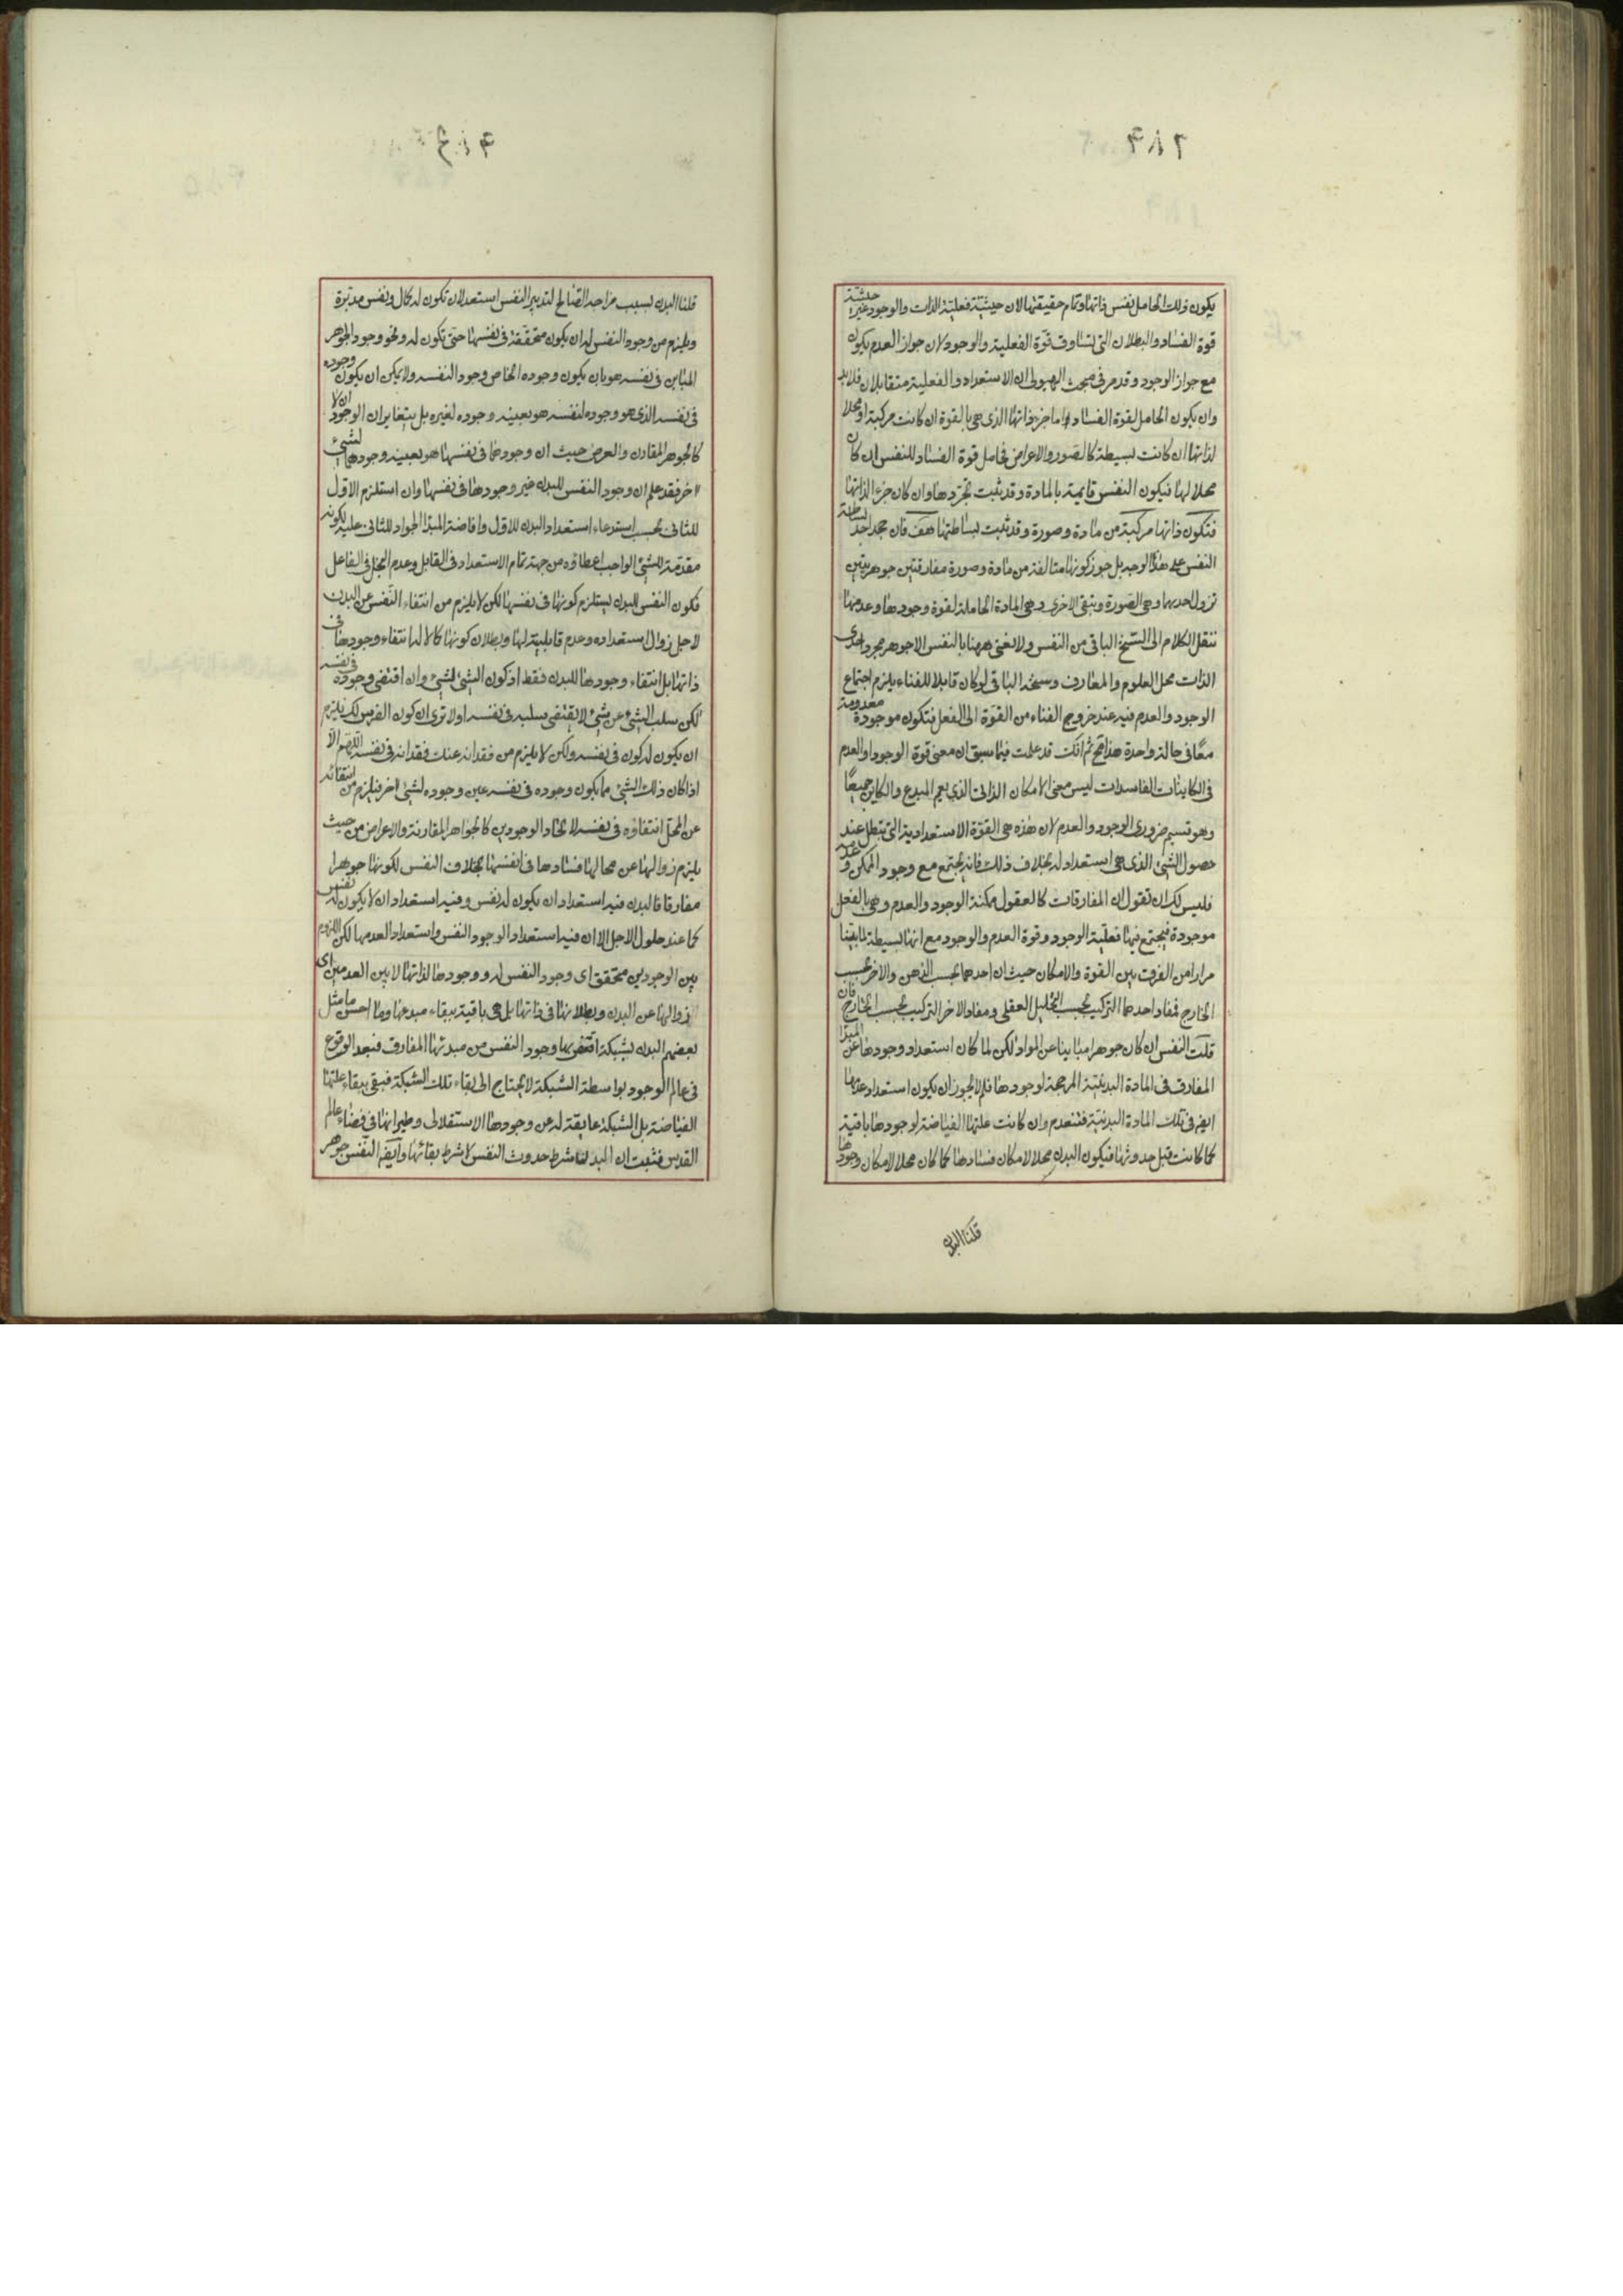 ٣٨٢
يكون ذلك الحامل نفس ذاتها وتمام حقيقتها لان حيثية فعلية الذات والوجود غير حيثية
قوة الفساد والبطلان التى تساوق قوة الفعلية والوجود لان جواز العدم يكون
مع جواز الوجود وقد مر فى مبحث الهيولى ان الاستعداد والفعلية متقابلان فلا بد
وان يكون الحامل لقوة الفساد اما جزء ذاتها الذى هى بالقوة ان كانت مركبة او محلا
لذاتها ان كانت بسيطة كالصور والاعراض فحامل قوة الفساد للنفس ان كان
محلا لها فيكون النفس قايمة بالمادة وقد ثبت تجردها وان كان جزء الذاتها
فتكون ذاتها مركبة من مادة وصورة وقد ثبت بساطتها هف فان جحد احد بساطة
النفس على هذا الوجه بل جوز كونها متالفة من مادة وصورة مفارقتين جوهريتين
تزول احديها وهى الصورة ويبقى الاخرى وهى المادة الحاملة لقوة وجودها وعدمها
ننقل الكلام الى السنخ الباقى من النفس ولا نعنى ههنا بالنفس الا جوهر مجرد احدى
الذات محل العلوم والمعارف وسنخه الباقى لو كان قابلا للفناء يلزم اجتماع
الوجود والعدم فيه عند خروج الفناء من القوة الى الفعل فتكون موجودة معدومة
معًا فى حالة واحدة هذا مح ثم انك قد علمت فيما سبق ان معنى قوة الوجود او العدم
فى الكاينات الفاسدات ليس معنى الامكان الذاتى الذى يعم المبدع والكاين جميعًا
وهو قسيم ضرورى الوجود والعدم لان هذه هى القوة الاستعدادية التى تبطل عند
حصول الشئ الذى هى استعداد له بخلاف ذلك فانه يجتمع مع وجود الممكن وعدمه
فليس لك ان تقول ان المفارقات كالعقول ممكنة الوجود والعدم وهى بالفعل
موجودة فيجتمع فيها فعلية الوجود وقوة العدم والوجود مع انها بسيطة لما بينا
مرارا من الفرق بين القوة والامكان حيث ان احدهما بحسب الذهن والاخر بحسب
الخارج فمفاد احدهما التركيب بحسب التحليل العقلى ومفاد الاخر التركيب بحسب الخارج فان
قلت النفس ان كان جوهرا مباينا عن المواد لكن لما كان استعداد وجودها عن المبدا
المفارق فى المادة البدنية المرجحة لوجودها فلم لا يجوز ان يكون استعداد عدمها
ايضا فى تلك المادة البدنية فتنعدم وان كانت علتها الفياضة لوجودها باقية
كما كانت قبل حدوثها فيكون البدن محلا لامكان فسادها كما كان محلا لامكان وجودها
قلنا البدن
قلنا البدن بسبب مزاجه الصالح لتدبير النفس استعد لان تكون له كمال ونفس مدبرة
ويلزم من وجود النفس له ان يكون متحققة فى نفسها حتى تكون له ونحو وجود الجوهر
المباين فى نفسه هو بان يكون وجوده الخاص وجود النفسه ولا يمكن ان يكون وجوده
فى نفسه الذى هو وجوده لنفسه هو بعينه وجوده لغيره بل يتغايران الوجودان لا
كالجوهر المقارن والعرض حيث ان وجودهما فى نفسهما هو بعينه وجودهما لشئ
اخر فقد علم ان وجود النفس للبدن غير وجودها فى نفسها وان استلزم الاول
للثانى بحسب استدعاء استعداد البدن للاول وافاضة المبدا الجواد للثانى عليه لكونه
مقدمة للشئ الواجب اعطاؤه من جهة تمام الاستعداد فى القابل وعدم البخل فى الفاعل
فكون النفس للبدن يستلزم كونها فى نفسها لكن لا يلزم من انتفاء النفس عن البدن
لاجل زوال استعداده وعدم قابليته لها وبطلان كونها كمالا له انتفاء وجودها فى
ذاتها بل انتفاء وجودها للبدن فقط اذ كون الشئ لشئ وان اقتضى وجوده فى نفسه
لكن سلب الشئ عن شئ لا يقتضى سلبه فى نفسه اولا ترى ان كون الفرس لك يلزم
ان يكون له كون فى نفسه ولكن لا يلزم من فقدانه عنك فقدانه فى نفسه اللهم الا
اذا كان ذلك الشئ مما يكون وجوده فى نفسه عين وجوده لشئ اخر فيلزم من انتفائه
عن المحل انتفاؤه فى نفسه لاتحاد الوجودين كالجواهر المقارنة والاعراض من حيث
يلزم زوالها عن محالها فسادها فى انفسها بخلاف النفس لكونها جوهرا
مفارقا فالبدن فيه استعداد ان يكون له نفس وفيه استعداد ان لا يكون له نفس
كما عند حلول الاجل الا ان فيه استعداد الوجود النفس واستعداد العدمها لكن اللزوم
بين الوجودين محقق اى وجود النفس له ووجودها لذاتها لا بين العدمين اى
زوالها عن البدن وبطلانها فى ذاتها بل هى باقية ببقاء مبدعها وما احسن ما مثل
بعضهم البدن بشبكة اقتنص بها وجود النفس من مبدئها المفارق فبعد الوقوع
فى عالم الوجود بواسطة الشبكة لا يحتاج الى بقاء تلك الشبكة فيبقى ببقاء علتها
الفياضة بل الشبكة عايقة له عن وجودها الاستقلالى وطيرانها فى فضاء عالم
القدس فثبت ان البدن شرط حدوث النفس لا شرط بقائها وايضا النفس جوهر